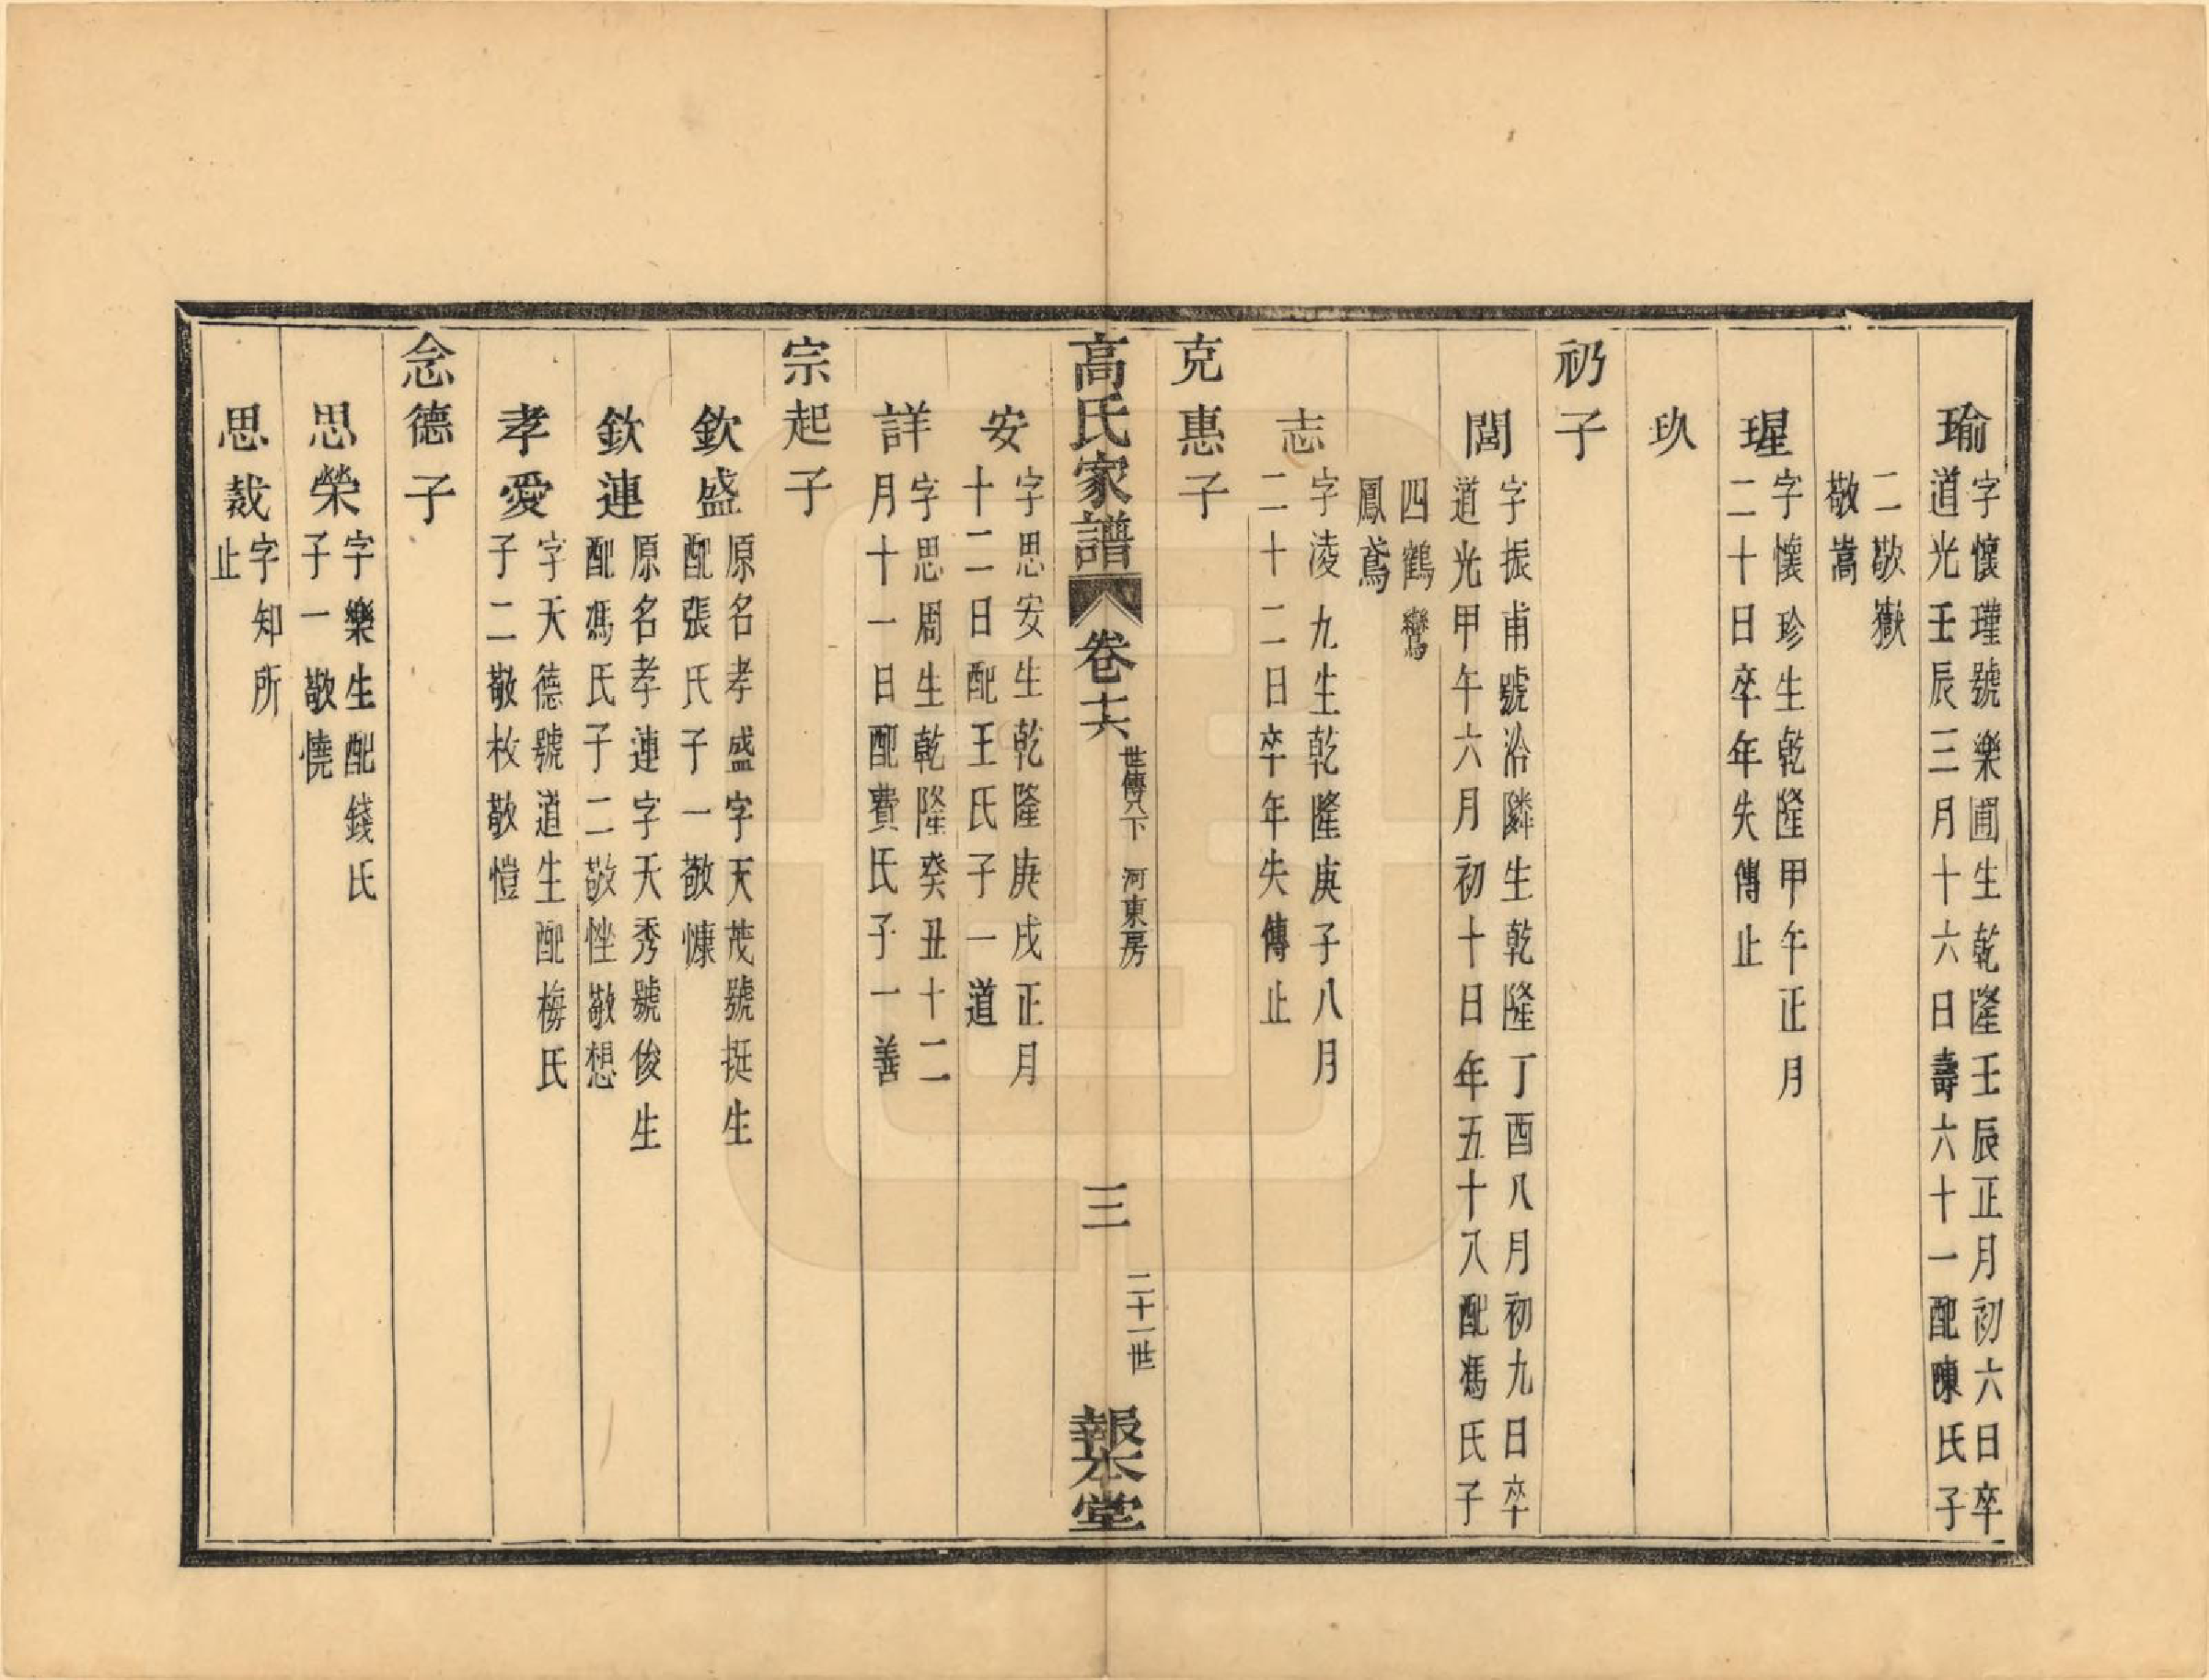 瑜
字懷瑾號樂圃生乾隆壬辰正月初六日卒
道光壬辰三月十六日壽六十一配陳氏子
二敬嶽
敬嵩
瑆
字懷珍生乾隆甲午正月
二十日卒年失傳止
玖
礽子
閶
字振甫號洽隣生乾隆丁酉八月初九日卒
道光甲午六月初十日年五十八配馮氏子
四鶴鸞
鳳鳶
志
字淩九生乾隆庚子八月
二十二日卒年失傳止
克惠子
高氏家譜
卷十六
世傳八下 河東房
三
二十一世
報本堂
安
字思安生乾隆庚戌正月
十二日配王氏子一道
詳
字思周生乾隆癸丑十二
月十一日配費氏子一善
宗起子
欽盛
原名孝盛字天茂號挺生
配張氏子一敬慷
欽連
原名孝連字天秀號俊生
配馮氏子二敬恎敬想
孝愛
字天德號道生配梅氏
子二敬枚敬愷
念德子
思榮
字樂生配錢氏
子一敬憢
思裁
字知所
止